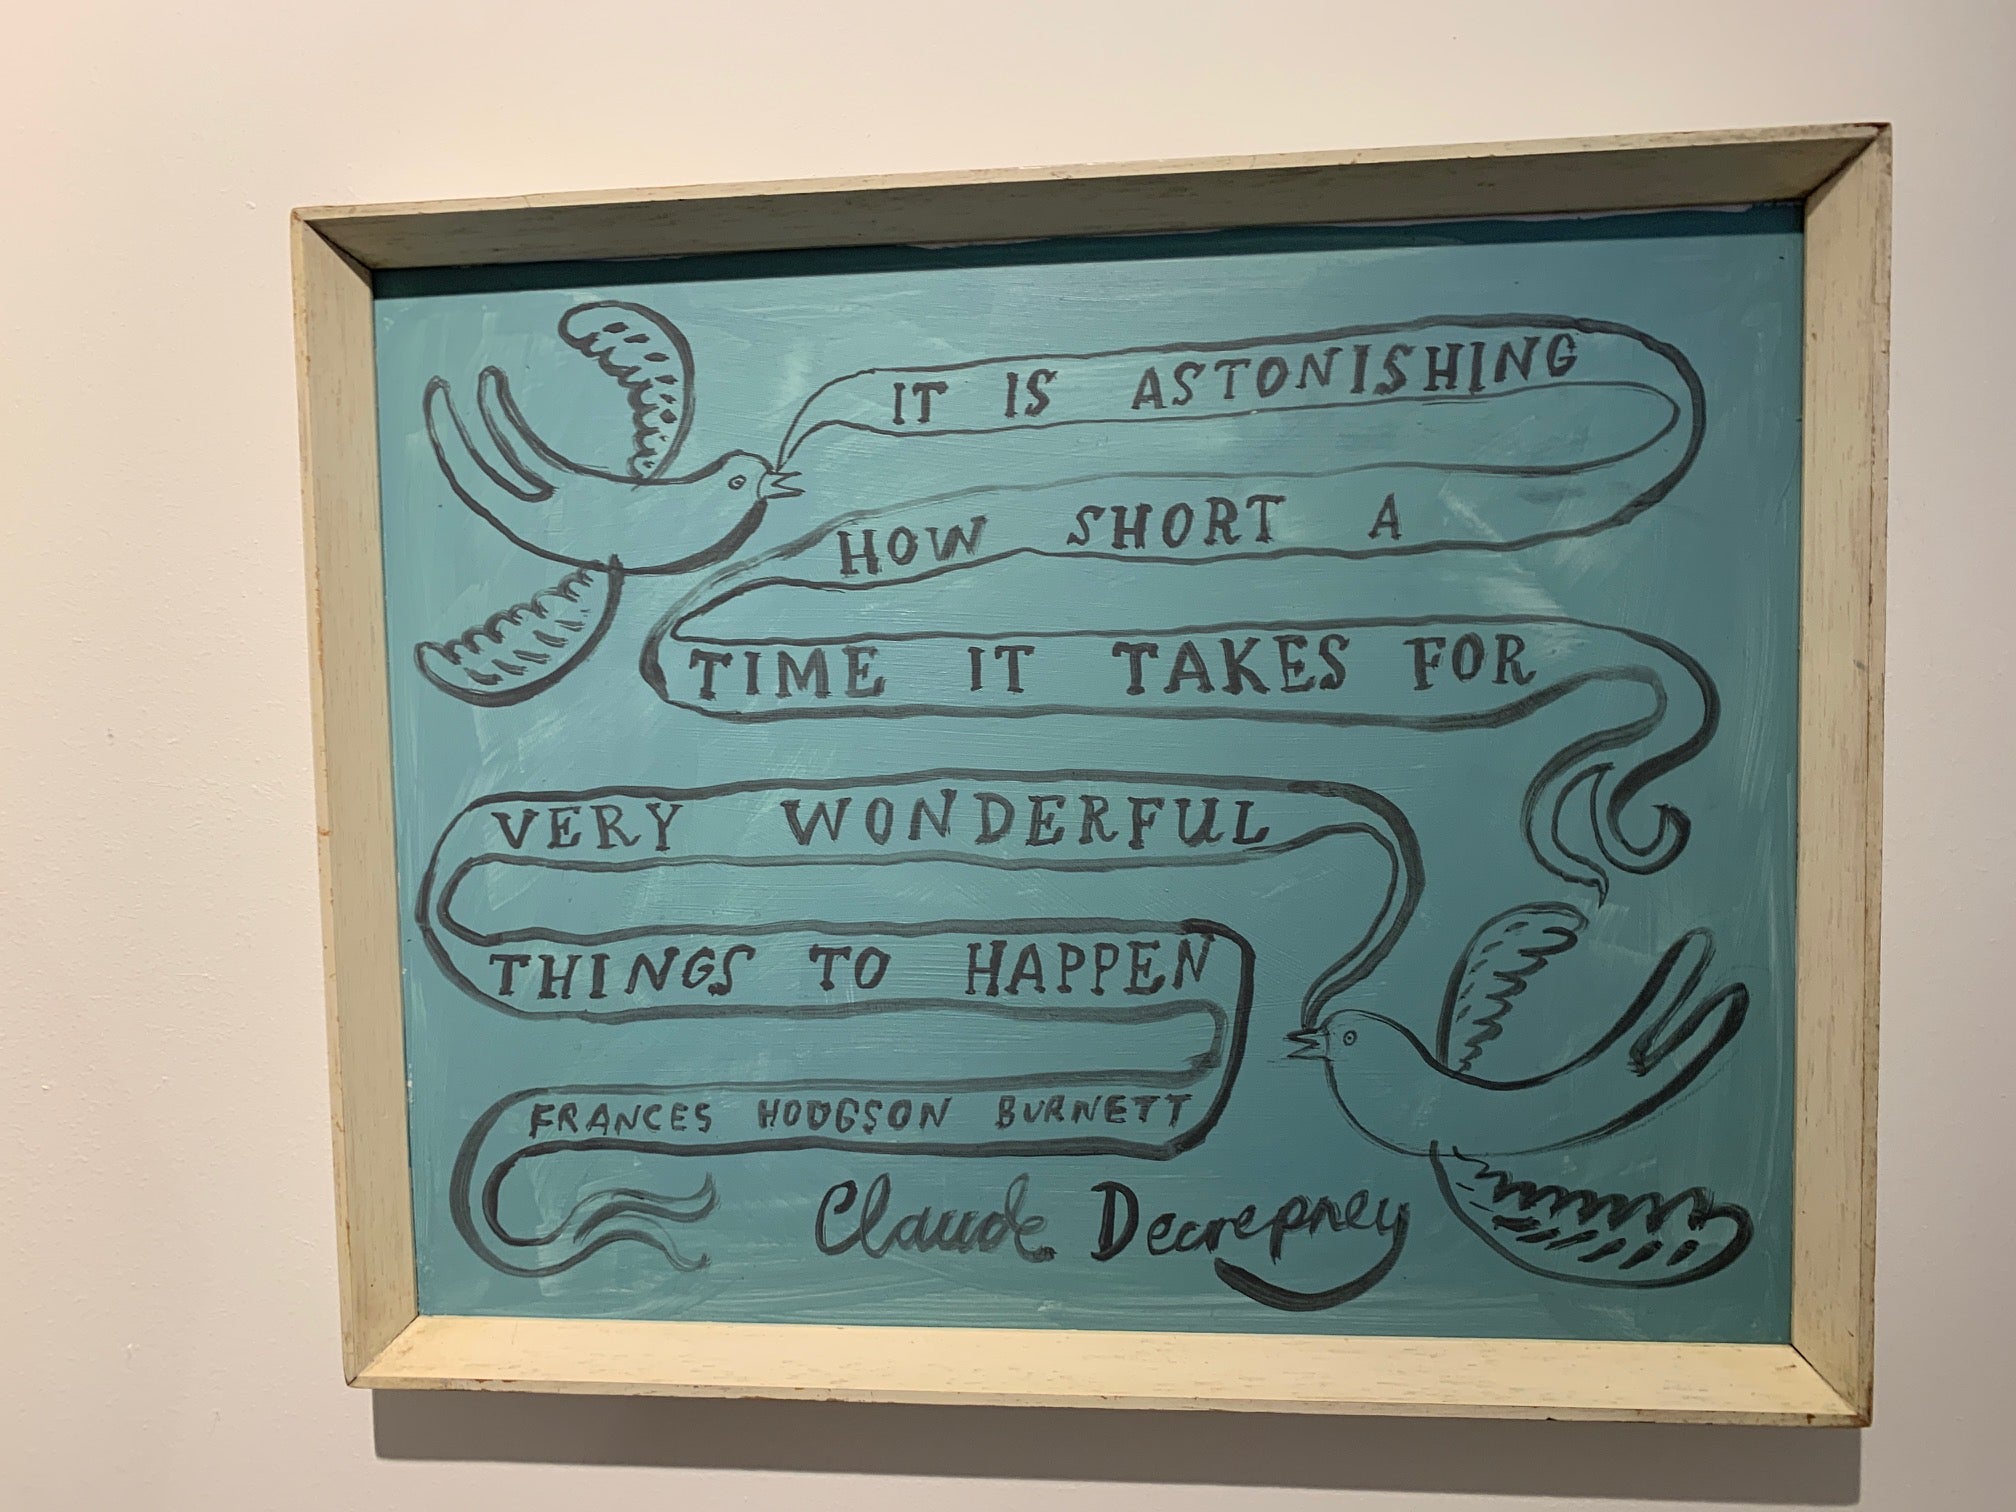 IT IS ASTONISHING
HOW SHORT A
TIME IT TAKES FOR
VERY WONDERFUL
THINGS TO HAPPEN
FRANCES HODGSON BURNETT
Claude Decrepney